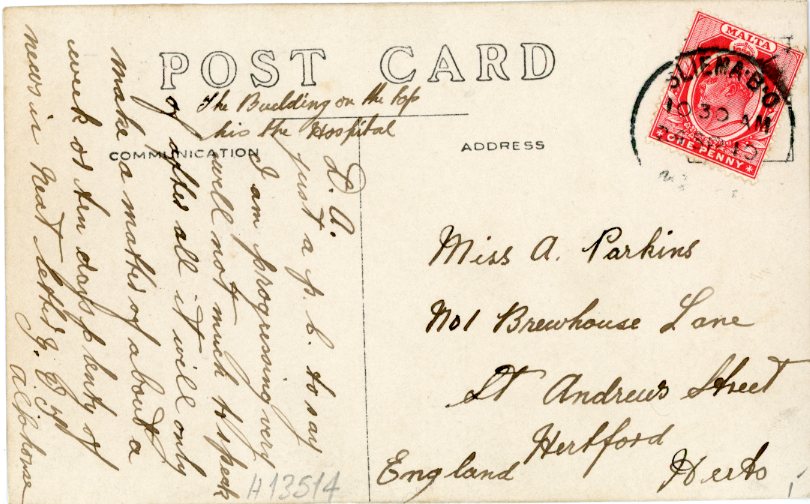 POST CARD
The Building on the top
his the Hospital
COMMUNICATION
ADDRESS
D. A.
just a p. c. to say
I am progressing very
well not much to speak
of after all it will only
make a matter of about a
week or ten days plenty of
news in next letter
Alphonse
Miss A. Parkins
No 1 Brewhouse Lane
St Andrews Street
Hertford
England Herts
H13514
MALTA
ONE PENNY
SLIEMA·B·O
10 30 AM
10